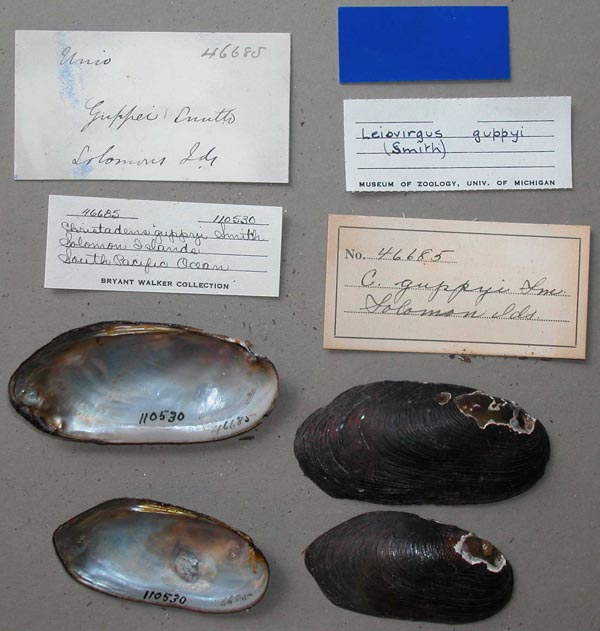 Unio 46685
Guppei Smith
Solomons Ids
Leiovirgus guppyi
(Smith)
MUSEUM OF ZOOLOGY, UNIV. OF MICHIGAN
46685 110530
guppyi Smith
Solomon Islands
South Pacific Ocean
BRYANT WALKER COLLECTION
No. 46685
C. guppyi Sm.
Solomon Ids.
110530
46685
110530